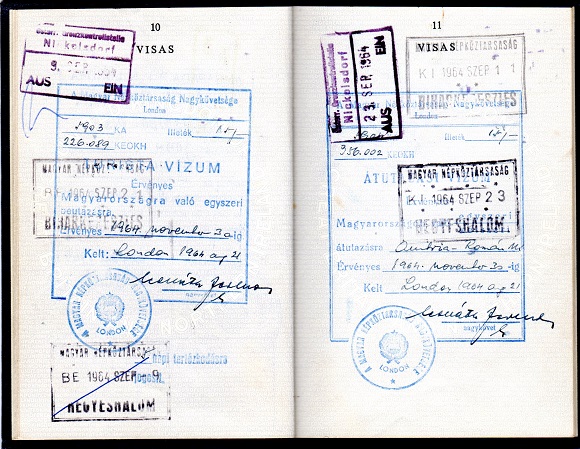 10
VISAS
Österr. Grenzkontrollstelle
Nickelsdorf
9. SEP. 1964
AUS EIN
Magyar Népköztársaság Nagykövetsége
London
5903 KA Illeték
226.089 KEOKH
TURISTA VÍZUM
Érvényes
Magyarországra való egyszeri
beutazásra
Érvényes 1964. november 30-ig
Kelt: London 1964 aug 21
MAGYAR NÉPKÖZTÁRSASÁG
1964 SZEP 2
BIHARKERESZTES
A MAGYAR NÉPKÖZTÁRSASÁG NAGYKÖVETSÉGE
LONDON
napi tartózkodásra
jogosít
MAGYAR NÉPKÖZTÁRSASÁG
BE 1964 SZEP 9
HEGYESHALOM
11
VISAS
Österr. Grenzkontrollstelle
Nickelsdorf
23. SEP. 1964
AUS EIN
MAGYAR NÉPKÖZTÁRSASÁG
KI 1964 SZEP 1 1
BIHARKERESZTES
Népköztársaság Nagykövetsége
London
Illeték
356.002 KEOKH
ÁTUTAZÓ VÍZUM
MAGYAR NÉPKÖZTÁRSASÁG
KI 1964 SZEP 23
HEGYESHALOM
Magyarországon
átutazásra
Érvényes 1964. november 30-ig
Kelt London 1964 aug 21
nagykövet
A MAGYAR NÉPKÖZTÁRSASÁG NAGYKÖVETSÉGE
LONDON